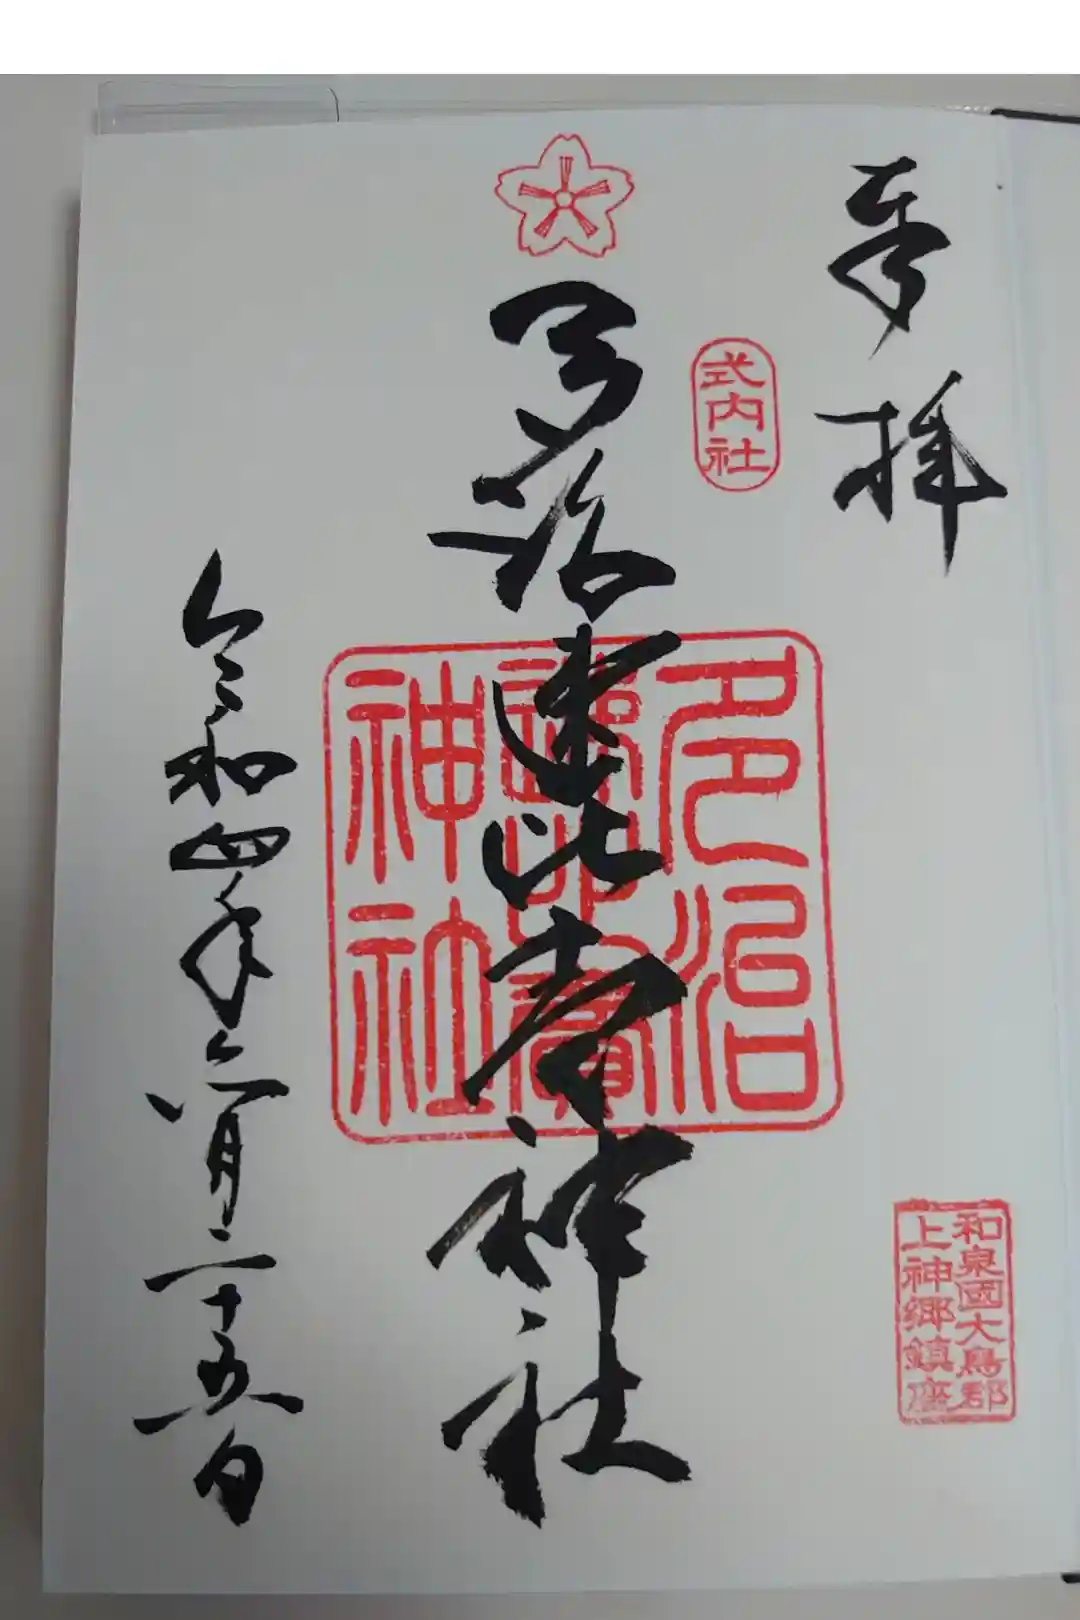 奉拝
式内社
和泉國大鳥郡
上神郷鎮座
多治速比売神社
多治
比賣
神社
令和四年六月二十五日